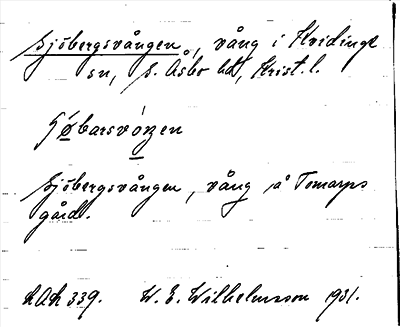 Sjöbergsvången, vång i Kvidinge
sn, S. Åsbo hd, Krist. l.
Sjöbergsvången, vång å Tomarps
gård.
LAL 339. W. E. Wilhelmsson 1931.